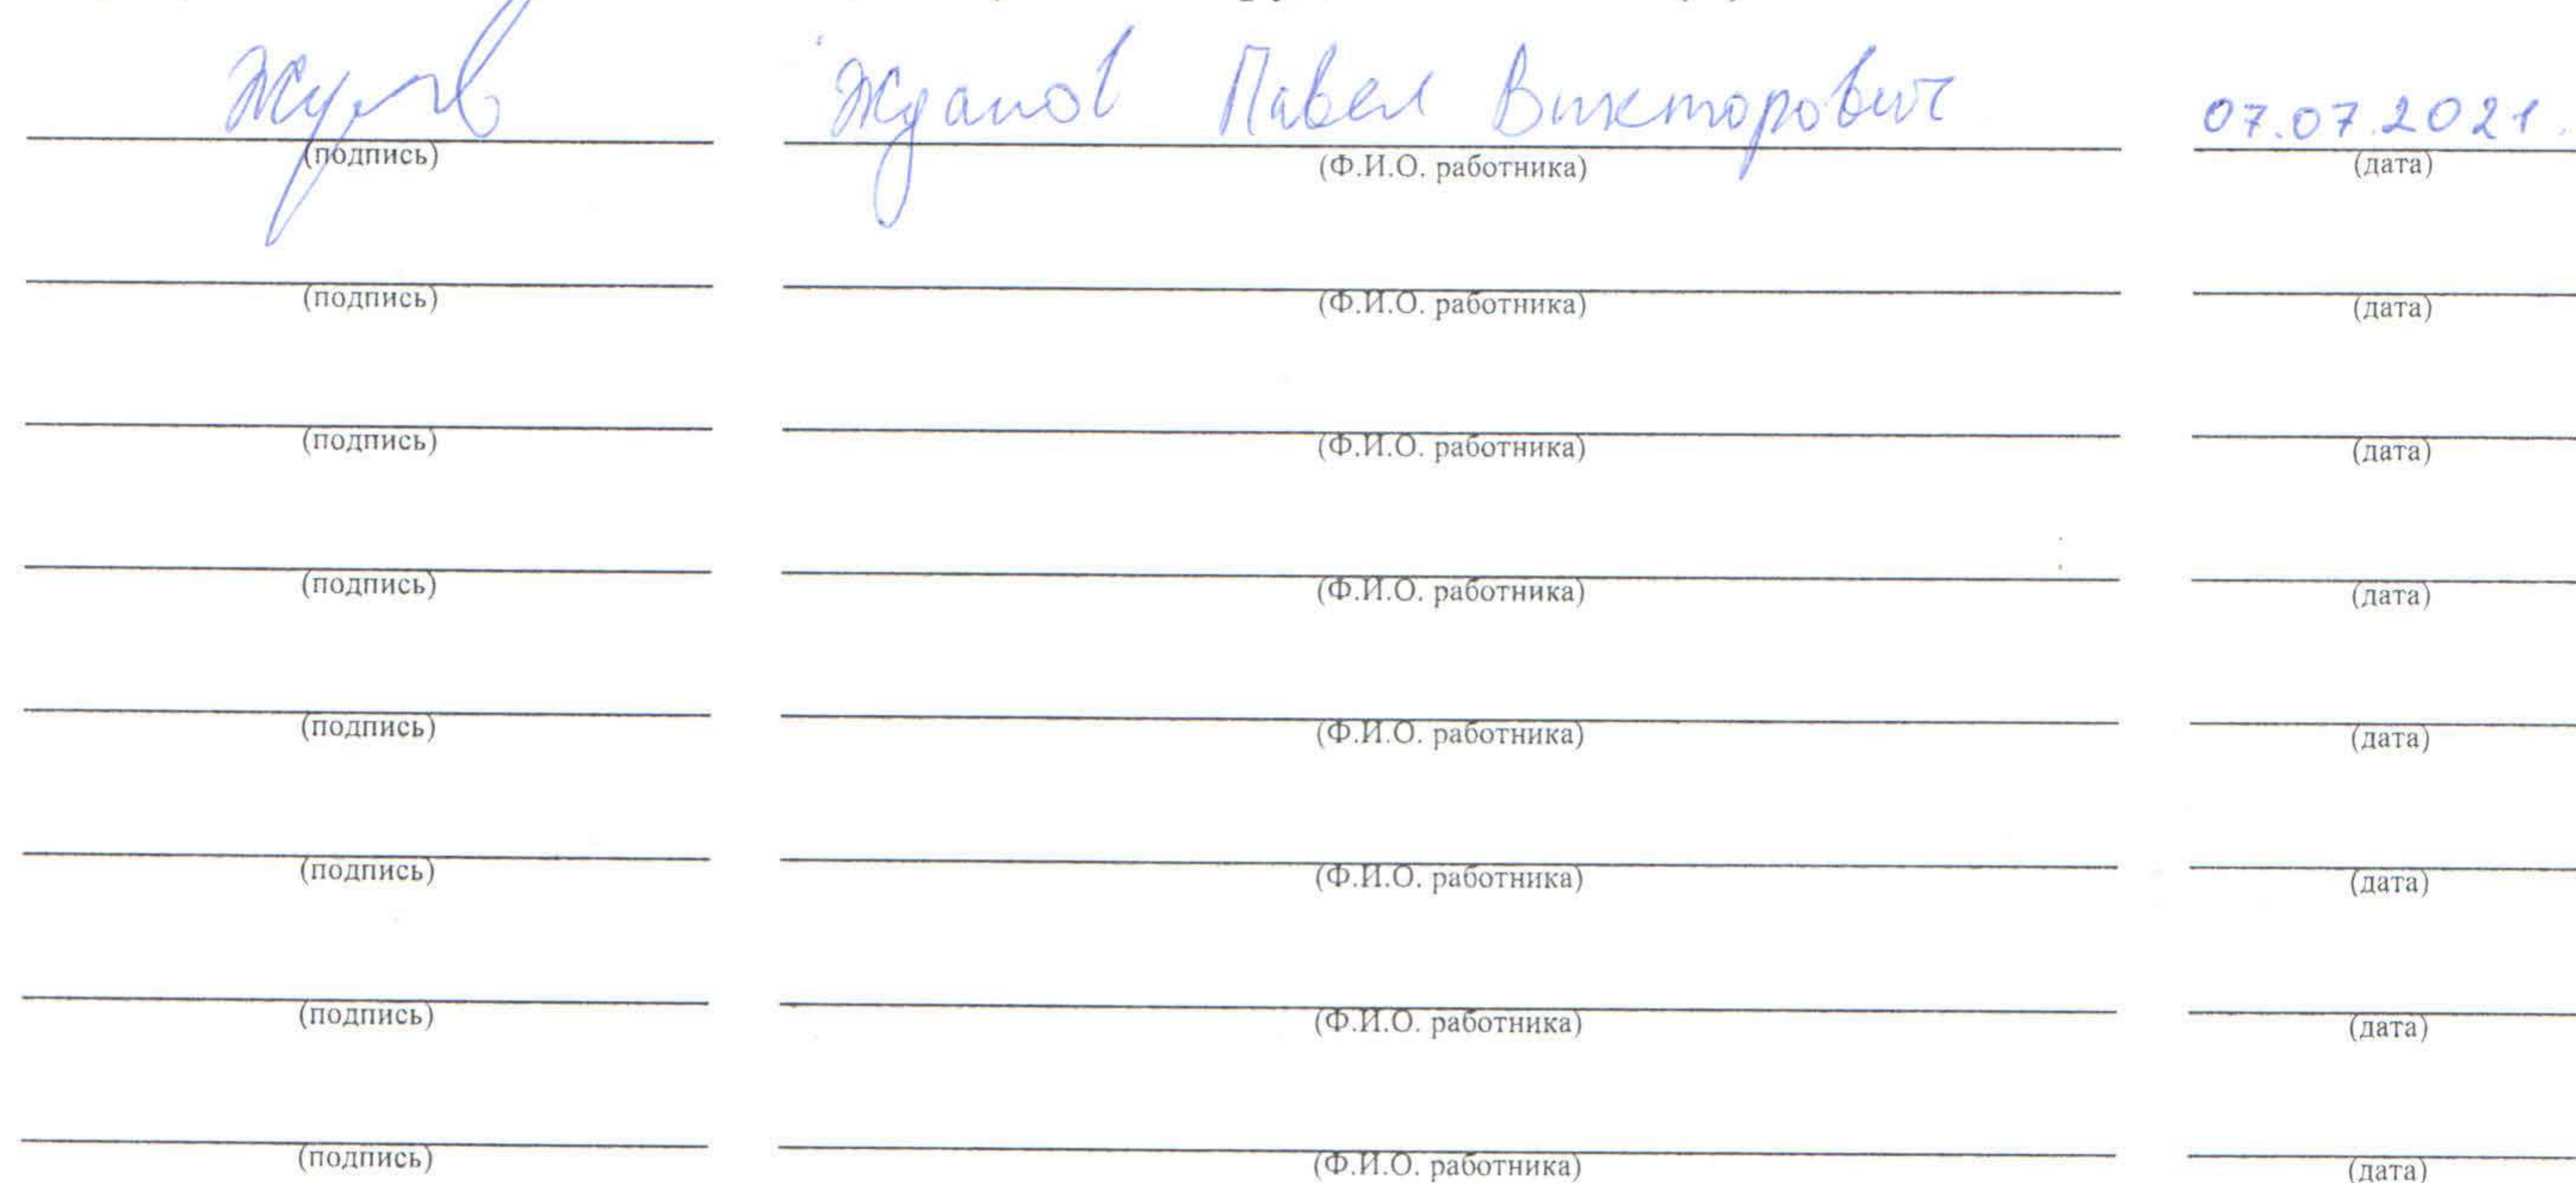 Жданов Павел Викторович 07.07.2021.
(подпись) (Ф.И.О. работника) (дата)
(подпись) (Ф.И.О. работника) (дата)
(подпись) (Ф.И.О. работника) (дата)
(подпись) (Ф.И.О. работника) (дата)
(подпись) (Ф.И.О. работника) (дата)
(подпись) (Ф.И.О. работника) (дата)
(подпись) (Ф.И.О. работника) (дата)
(подпись) (Ф.И.О. работника) (дата)